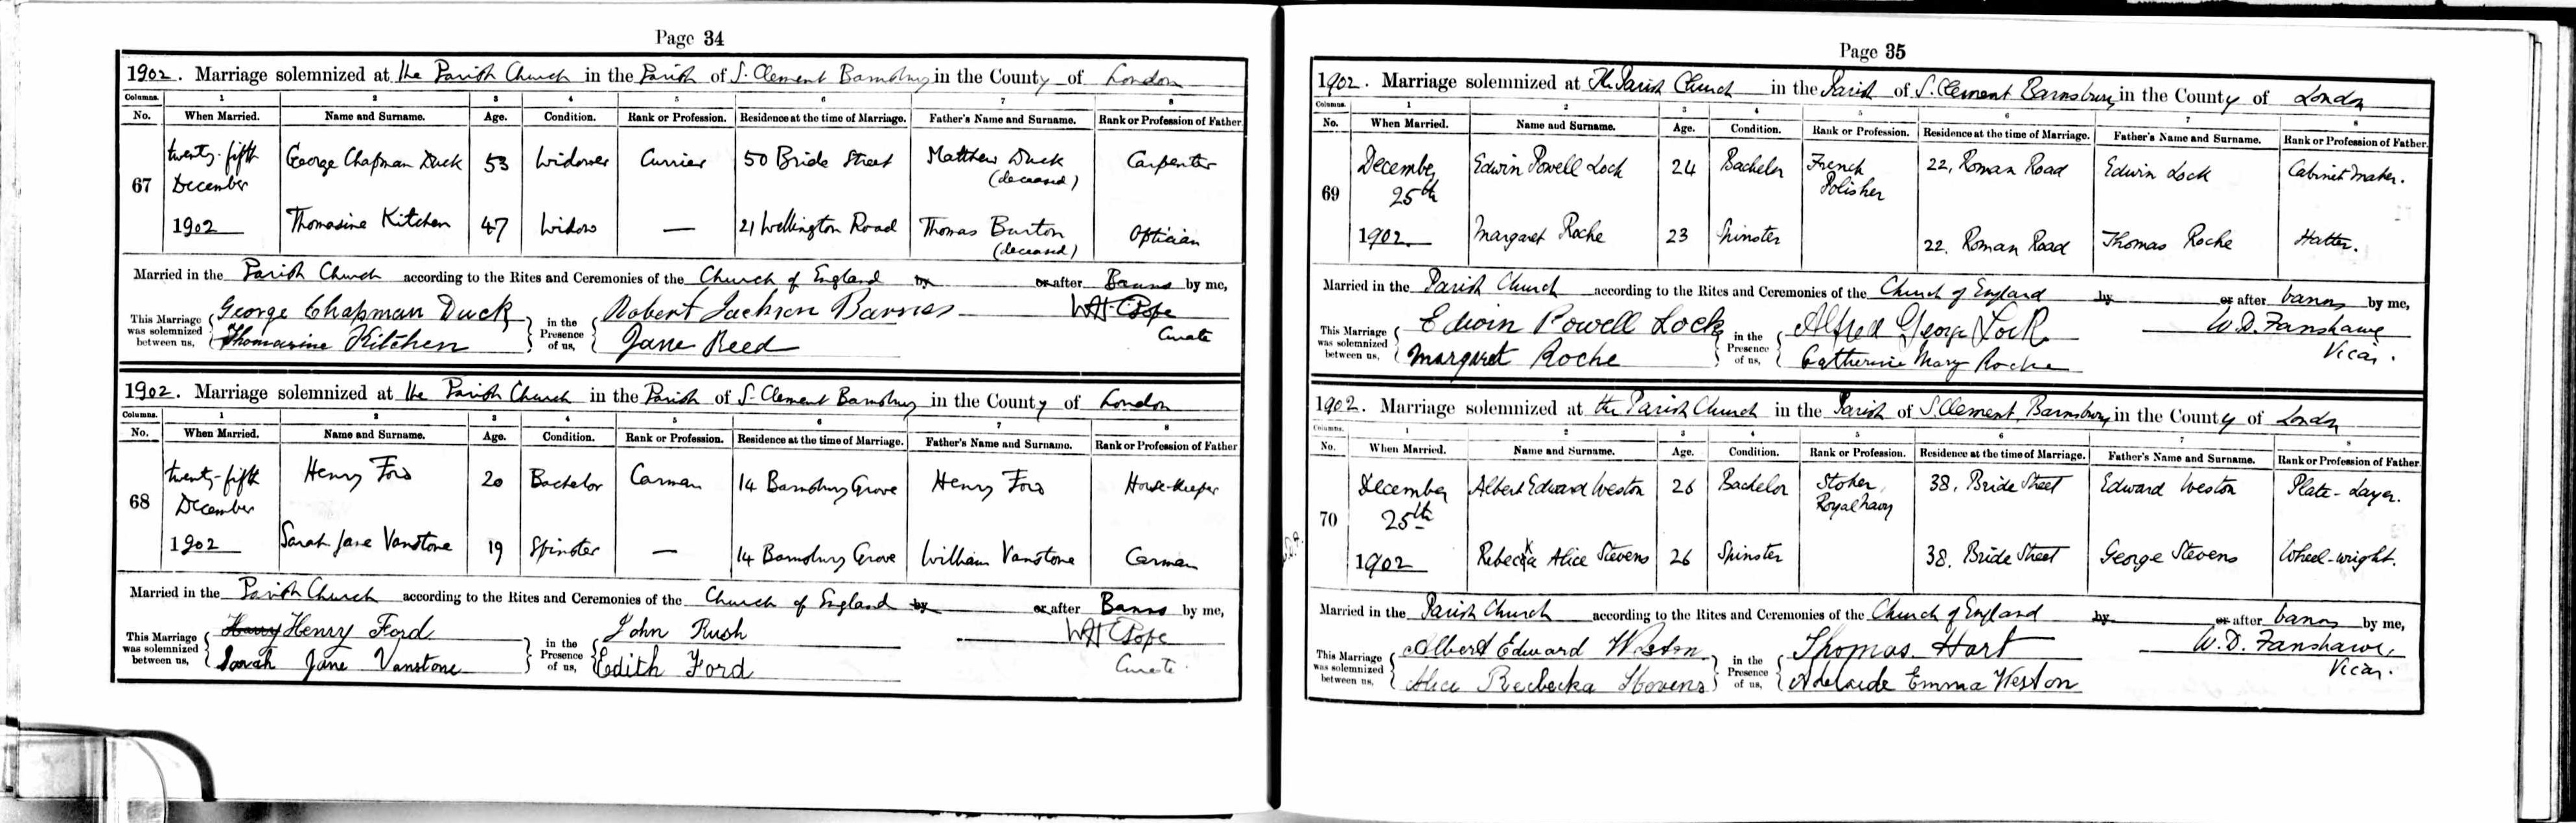 Page 34
1902. Marriage solemnized at the Parish Church in the Parish of S. Clement Barnsbury in the County of London
Columns. 1 2 3 4 5 6 7 8
No. When Married. Name and Surname. Age. Condition. Rank or Profession. Residence at the time of Marriage. Father's Name and Surname. Rank or Profession of Father.
67 twenty-fifth December George Chapman Duck 53 Widower Currier 50 Bride Street Matthew Duck (deceased) Carpenter
1902 Thomasine Kitchen 47 Widow — 21 Wellington Road Thomas Burton (deceased) Optician
Married in the Parish Church according to the Rites and Ceremonies of the Church of England by or after Banns by me,
This Marriage was solemnized between us, George Chapman Duck Thomasine Kitchen in the Presence of us, Robert Jackson Barnes Jane Reed W H C Pope Curate
1902. Marriage solemnized at the Parish Church in the Parish of S. Clement Barnsbury in the County of London
Columns. 1 2 3 4 5 6 7 8
No. When Married. Name and Surname. Age. Condition. Rank or Profession. Residence at the time of Marriage. Father's Name and Surname. Rank or Profession of Father
68 twenty-fifth December Henry Ford 20 Bachelor Carman 14 Barnsbury Grove Henry Ford House-keeper
1902 Sarah Jane Vanstone 19 Spinster — 14 Barnsbury Grove William Vanstone Carman
Married in the Parish Church according to the Rites and Ceremonies of the Church of England by or after Banns by me,
This Marriage was solemnized between us, Harry Henry Ford Sarah Jane Vanstone in the Presence of us, John Rush Edith Ford W H C Pope Curate
Page 35
1902. Marriage solemnized at The Parish Church in the Parish of S. Clement Barnsbury in the County of London
Columns. 1 2 3 4 5 6 7 8
No. When Married. Name and Surname. Age. Condition. Rank or Profession. Residence at the time of Marriage. Father's Name and Surname. Rank or Profession of Father.
69 December 25th Edwin Powell Lock 24 Bachelor French Polisher 22, Roman Road Edwin Lock Cabinet maker.
1902 Margaret Roche 23 Spinster 22, Roman Road Thomas Roche Hatter.
Married in the Parish Church according to the Rites and Ceremonies of the Church of England by or after banns by me,
This Marriage was solemnized between us, Edwin Powell Lock Margaret Roche in the Presence of us, Alfred George Lock Catherine Mary Roche W. D. Fanshawe Vicar.
1902. Marriage solemnized at the Parish Church in the Parish of S. Clement, Barnsbury, in the County of London
Columns. 1 2 3 4 5 6 7 8
No. When Married. Name and Surname. Age. Condition. Rank or Profession. Residence at the time of Marriage. Father's Name and Surname. Rank or Profession of Father
70 December 25th Albert Edward Weston 26 Bachelor Stoker, Royal navy 38, Bride Street Edward Weston Plate-Layer.
1902 Rebecka Alice Stevens 26 Spinster 38, Bride Street George Stevens Wheel-wright.
Married in the Parish Church according to the Rites and Ceremonies of the Church of England by or after banns by me,
This Marriage was solemnized between us, Albert Edward Weston Alice Rebecka Stevens in the Presence of us, Thomas Hart Adelaide Emma Weston W. D. Fanshawe, Vicar.